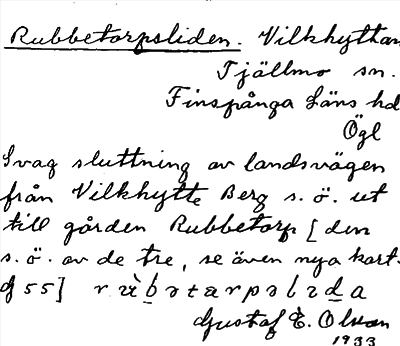 Rubbetorpsliden. Vilkhyttan
Tjällmo sn.
Finspånga Läns hd
Ögl
Svag sluttning av landsvägen
från Vilkhytte Berg s.ö. ut
till gården Rubbetorp [den
s.ö. av de tre, se även nya kart.
55]
Gustaf E. Olson
1933